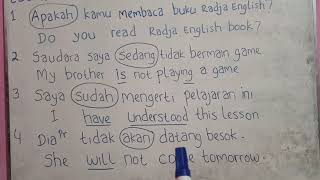 1 Apakah kamu membaca buku Radja English?
Do you read Radja English book?
2 Saudara saya Sedang tidak bermain game
My brother is not playing a game
3 Saya Sudah mengerti pelajaran ini
I have understood this lesson
4 Dia Pr tidak akan datang besok.
She will not come tomorrow.